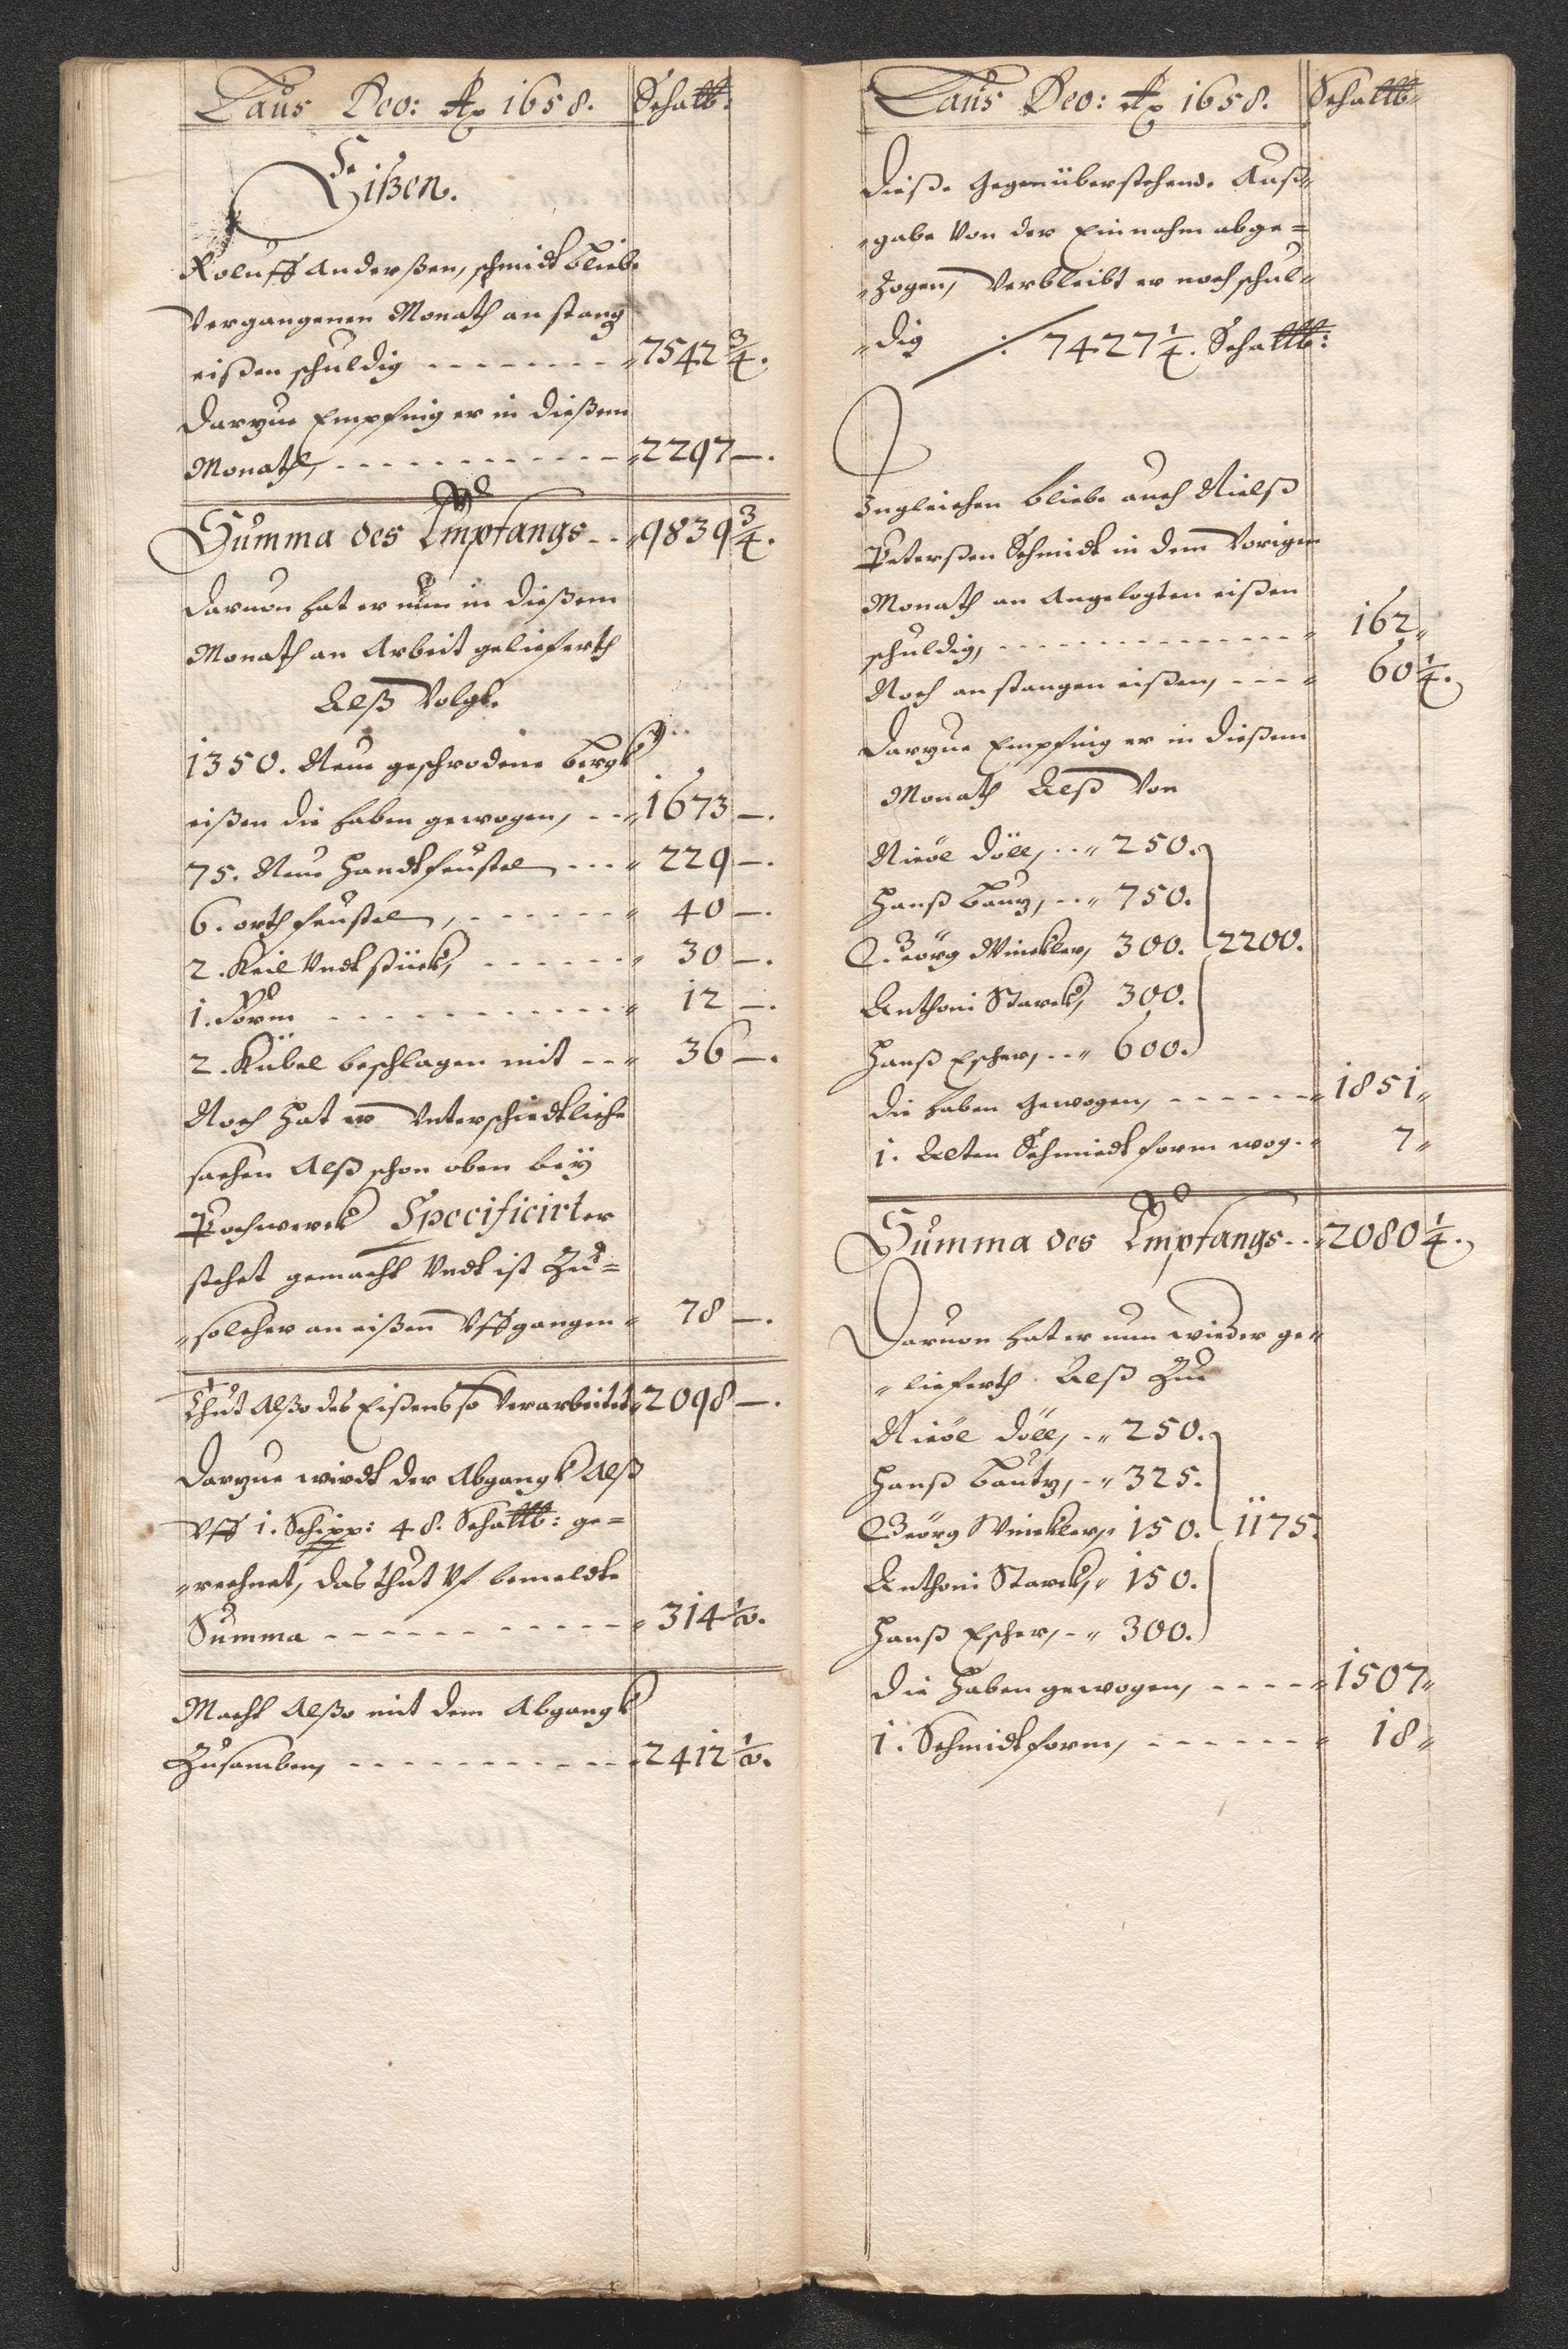 Laus Deo: Ao 1658. Schalb:
Eißen.
Roluff Anderßen, schmidt bliebe
Vergangenen Monath an stang
eißen schuldig - - - - - - - - 7542 3/4.
Darzue Empfing er in dießem
Monath, - - - - - - - - - - - 2297 —.
Summa des Empfangs - - 9839 3/4.
Daruon hat er nun in dießem
Monath an Arbeit geliefferth
Alß Volgt.
1350. Neue geschrodene bergk
eißen die haben gewogen, - - 1673 —.
75. Neue Handtfeustel - - - 229 —.
6. orth feustel, - - - - - - - 40 —.
2. Keil Undt stück, - - - - - - 30 —.
1. Form - - - - - - - - - - - 12 —.
2. Kübel beschlagen mit - - 36 —.
Noch hat er Unterschiedtliche
sachen Alß schon oben beÿ
Pochwerck Specificirter
stehet gemacht Undt ist Zu=
solcher an eißenn Uffgangen 78 —.
Thut Alßo des Eißens so Verarbeitet 2098 —.
Darzue wirdt der Abgangk Alß
Uff 1. Schipp: 48. Schalb: ge=
rechnet, das thut Uf bemeldte
Summa - - - - - - - - - - - 314 1/2.
Macht Alßo mit dem Abgangk
Zusamben, - - - - - - - - - - 2412 1/2.
Laus Deo: Ao 1658. Schalb
Dieße Gegenüberstehende Auß=
gabe Von der Einnahm abge=
Zogen, Verbleibt er noch schul=
dig ∕. 7427 1/4. Schalb:
Ingleichen bliebe auch Nielß
Peterßen Schmidt in dem Vorigen
Monath an Angelegten eißen
schuldig, - - - - - - - - - - - 162
Noch an stangen eißen, - - - 60 1/4.
Darzue Empfing er in dießem
Monath Alß Von
Nicol Döll, - - 250.
Hanß Bautz, - - 750.
Georg Winckler, 300. 2200.
Anthoni Starck, 300.
Hanß Escher, - - 600.
die haben Gewogen, - - - - - - 1851
1. Alten Schmiedt form wog - 7
Summa des Empfangs - - 2080 1/4.
Daruon hat er nun wieder ge=
liefferth Alß Zue
Nicol Döll, - - 250.
Hanß Bautz, - - 325.
Georg Winckler, 150. 1175.
Anthoni Starck, 150.
Hanß Escher, - - 300.
die haben gewogen, - - - - - 1507
1. Schmidtform, - - - - - - - 18